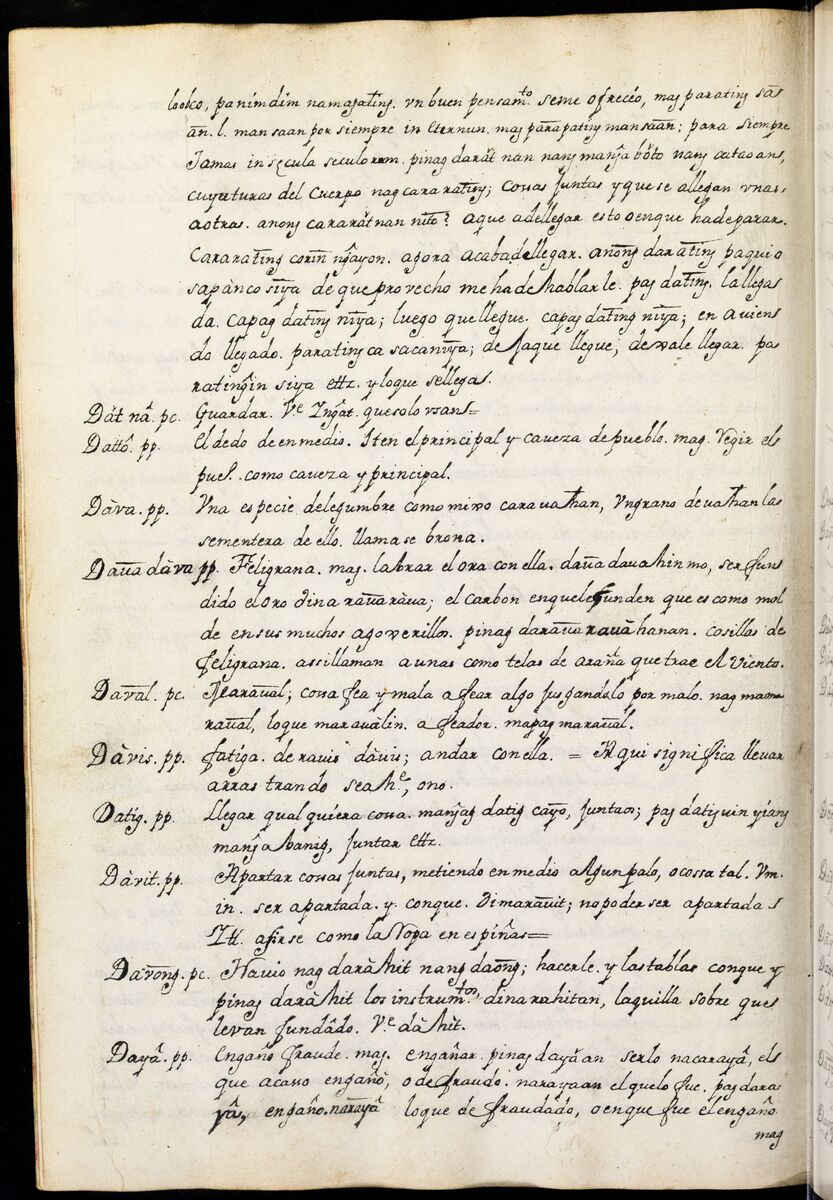 looco, panimdim namagatĩng. vn buen pensam.to seme ofreceo, mag paratĩng sãs
ãn. l. mansaan por siempre in eternun. mag pãra patĩng mansãan; para siempre
Jamas in secula seculorum. pinag darãt nan nang manga bõto nang catao ans,
cuyuturas del cuerpo nag cararatĩng; cossas juntas y que se allegan vnas
aotras. anong cararãtnan nito? aque adellegar esto oenque hadeparar.
Cararatĩng corin ngayon. agora acabadellegar. anõng daratĩng paquio
sapànco siya de que provecho mehadehablarle. pag datĩng. la llegas
da. capag datĩng nĩya; luego que llegue. capag datĩng nĩya; en aviens
do llegado. paratĩng ca sacanĩya; de Jaque llegue, devale llegar. pa
ratingin siya ettz. yloque sellegas.
Dàt nã. pc. Guardar. Ve Ingat. quesolo vsans=
Dattô. pp. El dedo deenmedio. Iten elprincipal y caveza depueblo. mag. Regir els
puel. como caveza y principal.
Dàva. pp. Vna especie delegumbre como mixo caravathan, Vngrano
sementera de ello. llamase brona.
Daũa dàva pp. Feligrana. mag. labrar el ora con ella. daũa davahin mo, ser funs
dido el oro dina raũarava; el carbon enquele funden que es como mol
de ensus muchos agoverillos. pinag daraũa rauà hanan. cosillas de
feligrana. assillaman aunas como telas de araña que trae el viento.
Daval. pc. Maraũal; cossa fea y mala afear algo jusgandolo por malo. nag mama
raũal, loque maravalin. afeador. mapag maraũal.
Dàvis. pp. fatiga. deravis dàvis; andar conella. = Aqui significa llevar
arrastrando seahe, ono.
Datig. pp. Llegar qualquiera cossa. mangag datig cayo, juntaos; pag datiguin yiang
manga banig, juntar ettz.
Dàvit. pp. Apartar cossas juntas, metiendo enmedio algun palo, o cossa tal. Vm.
in. ser apartada. y. conque. Dimarauit; nopoder ser apartada s
Itt. afirse como la Ropa en espiñas=
Davong. pc. Navio nag daràhit nang daõng; hacerle. y las tablas conque y
pinag daràhit los instrum.tos, dinarahitan, laquilla sobre ques
levan fundado. Ve dàhit.
Dayâ. pp. Engaño fraude. mag. engañar. pinag dayàan serlo nacarayâ, els
que acasso engaño, odefraudo. narayaan elquelo fue. pag dara
yâ, engaño. narayâ loque defraudado, oenque fue elengaño
mag